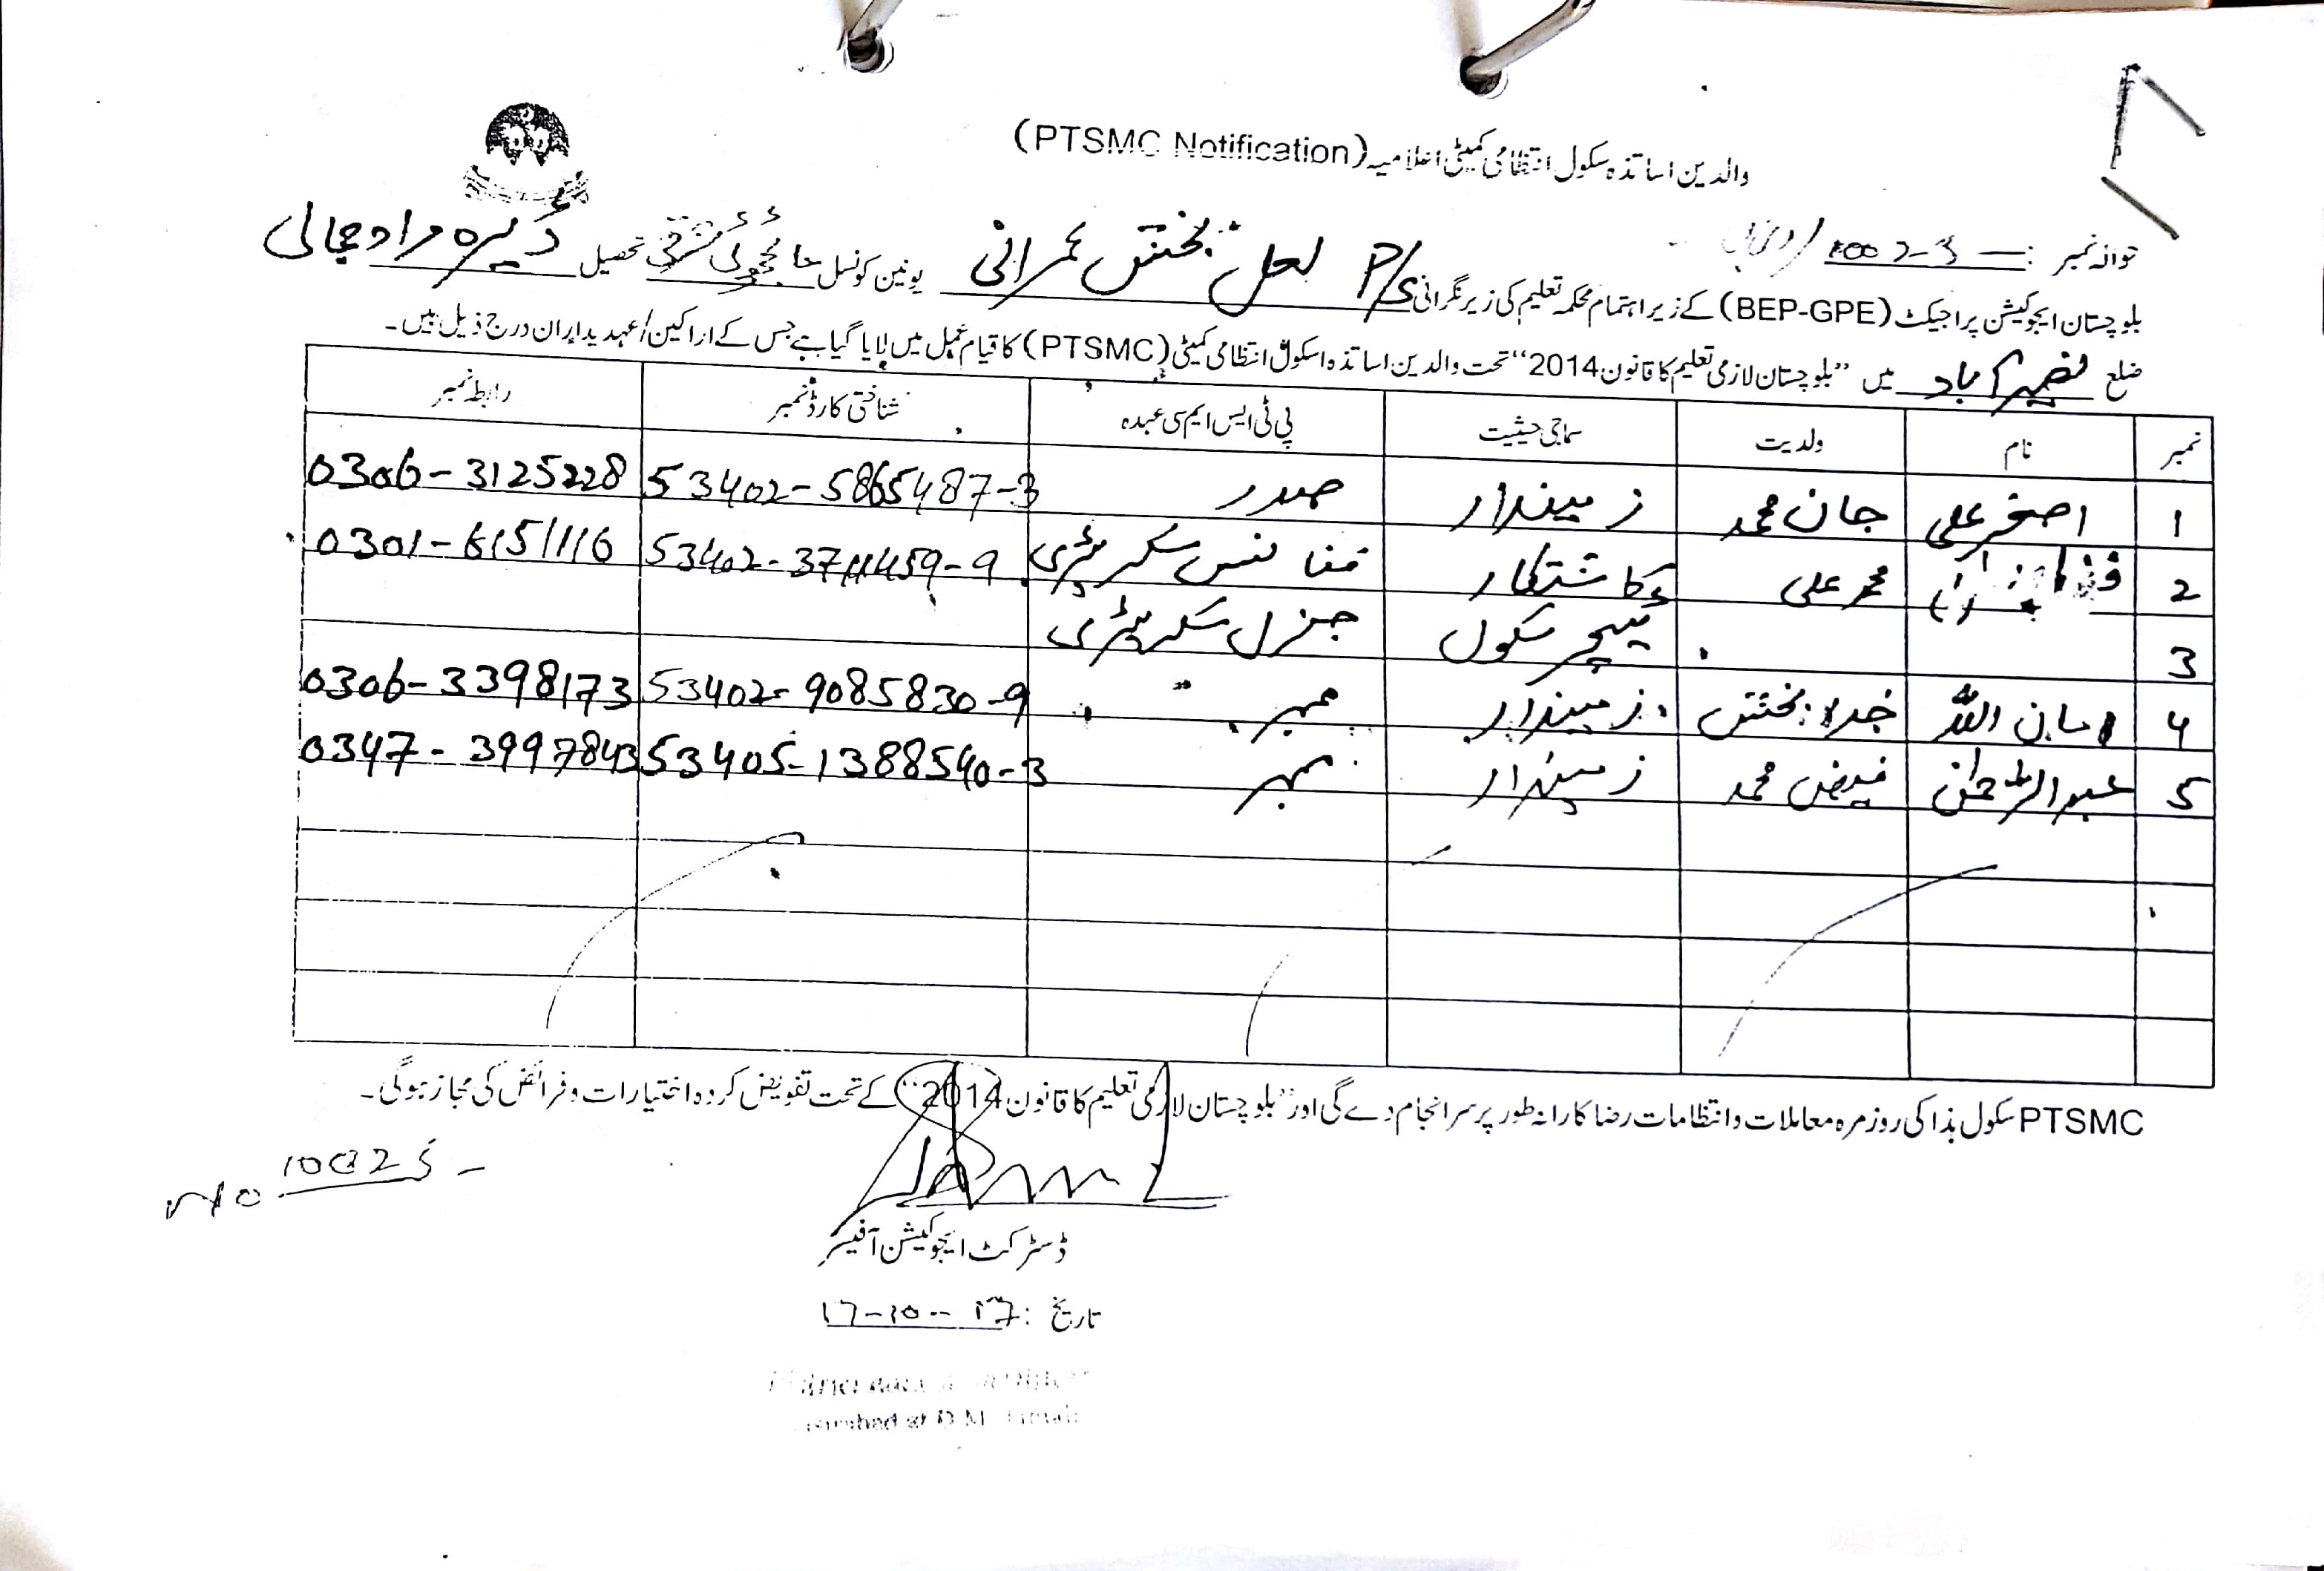 والدین اساتذہ سکول انتظامی کمیٹی اعلامیہ (PTSMC Notification)
حوالہ نمبر :
بلوچستان ایجوکیشن پراجیکٹ (BEP-GPE) کے زیر اہتمام محکمہ تعلیم کی زیر نگرانی P/S لعل بخش عمرانی یونین کونسل شرقی تحصیل ڈیرہ مراد جمالی
ضلع نصیر آباد میں "بلوچستان لازمی تعلیم کا قانون 2014" تحت والدین اساتذہ اسکول انتظامی کمیٹی (PTSMC) کا قیام عمل میں لایا گیا ہے جس کے اراکین/عہدیداران درج ذیل ہیں۔
نمبر نام ولدیت سماجی حیثیت پی ٹی ایس ایم سی عہدہ شناختی کارڈ نمبر رابطہ نمبر
1 اصغر علی جان محمد زمیندار صدر 53402-5865487-3 0306-3125228
2 محمد علی کاشتکار فنانس سکریٹری 0301-6151116
3 ٹیچر سکول جنرل سکریٹری
4 امان اللہ خدا بخش زمیندار ممبر 53402-9085830-9 0306-3398173
5 عبدالرحمٰن فیض محمد زمیندار ممبر 53405-1388540-3 0347-3997843
PTSMC سکول ہذا کی روز مرہ معاملات و انتظامات رضا کارانہ طور پر سر انجام دے گی اور "بلوچستان لازمی تعلیم کا قانون 2014" کے تحت تفویض کردہ اختیارات و فرائض کی مجاز ہوگی۔
No 10025
ڈسٹرکٹ ایجوکیشن آفیسر
تاریخ : 17-10-17